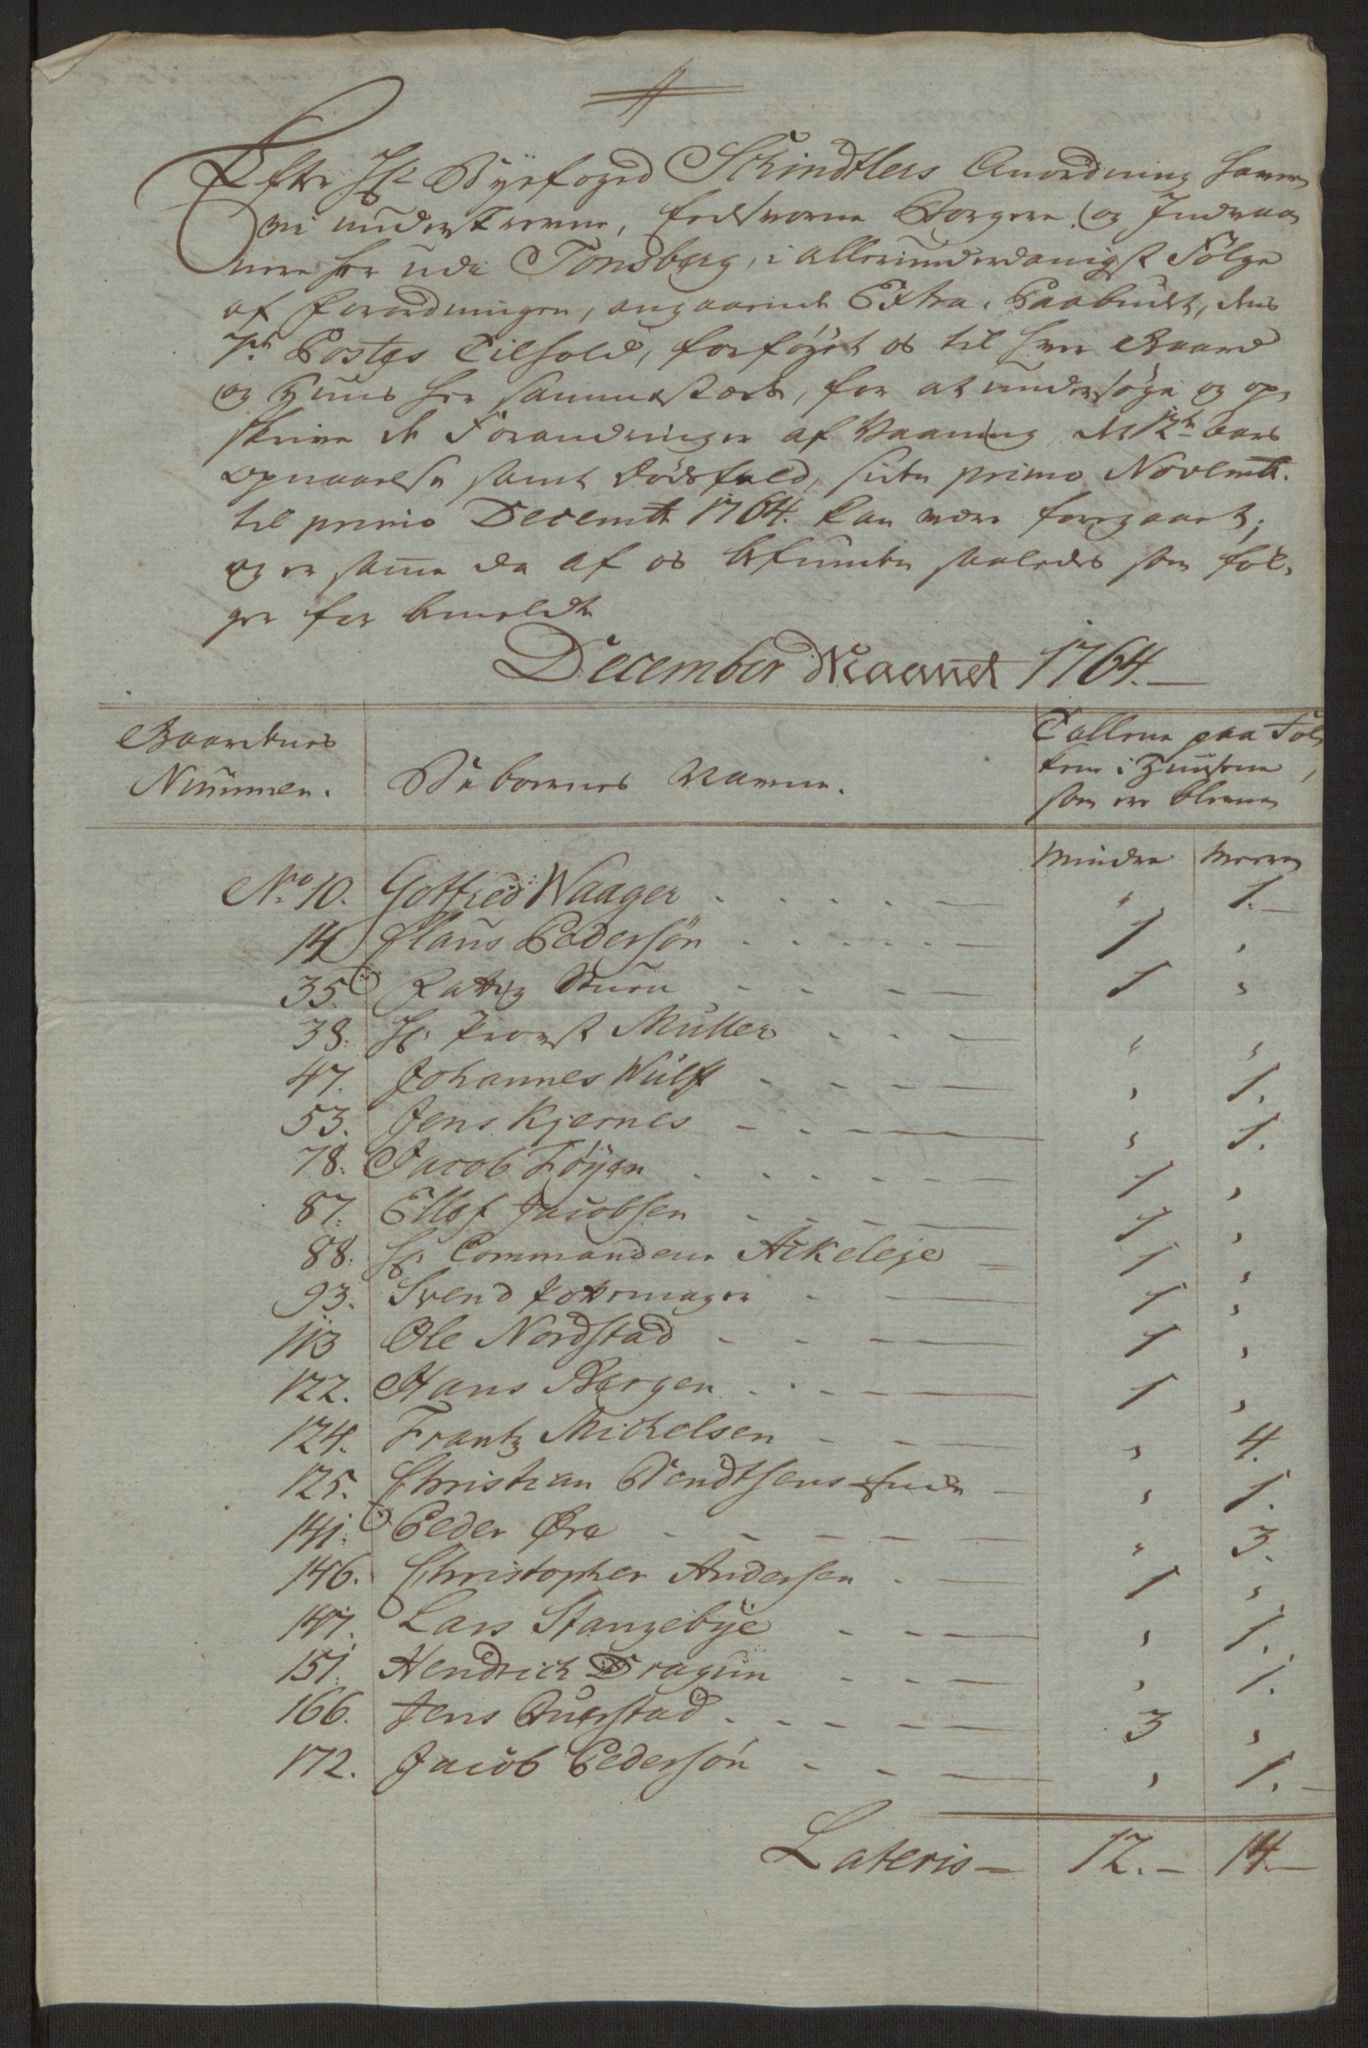 Efter Hr Byefoged Schindtlers Anordning haver
vi underskrevne, Eedsvorne Borgere og Indvaa
nere her udi Tønsberg, i allerunderdanigst Følge
af Forordningen, angaaende Extra Paabudet, dens
7de Postes Tilhold, forføyet os til hver Gaard
og Huus her sammestæds, for at undersøge og op-
skrive de Forandringer af Vaaning, det 12te Aars
opnaaelse samt Dødsfald, siden primo Novembr.
til primo Decembr 1764. kan være foregaaet;
og er samme da af os befunden saaledes som føl-
ger her bemeldt
December Maaned 1764.
Gaardenes Nummer. Beboernes Navne. Tallene paa Fol
kene i Huusene
som ere blevne
Mindre Meere
No 10. Gotfred Waager . . . . . — " 1.—
14 Claus Pedersøn . . . . . — 1 "
35. Rattig Stuen - - - — 1 "
38. Hr Provst Müller - - — " "
47. Johannes Wulf - - - — " 1.
53. Jens Kjernes - - — " 1.
78. Jacob Føyen . . . . — 1 "
87. Ellof Jacobsen . . . — 1 "
88. Hr Commandeur Akeleye = 1 "
93. Svend Pottemager - — 1 "
113 Ole Nordstad - - — 1 "
122. Hans Bergen . . - — 1 "
124. Frantz Michelsen - - — " 4.
125. Christian Bendtsens Enke — " 1.
141. Peder Øra - - - — " 3.
146. Christopher Andersen - — 1 "
147. Lars Stangebye - - — " 1.
151. Hendrich Dragun - - — " 1.
166. Jens Auerstad . - - — 3 "
172. Jacob Pedersøn - - — " 1.—
Lateris — 12.— 14.—